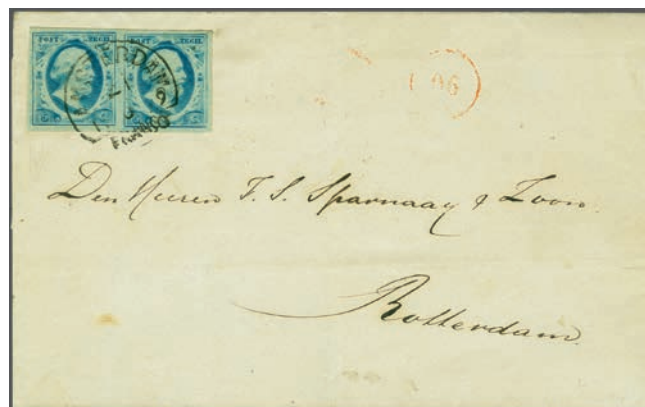 POST ZEGEL POST ZEGEL
AMSTERDAM
FRANCO
Den Heeren T. S. Sparnaay & Zoon.
Rotterdam.